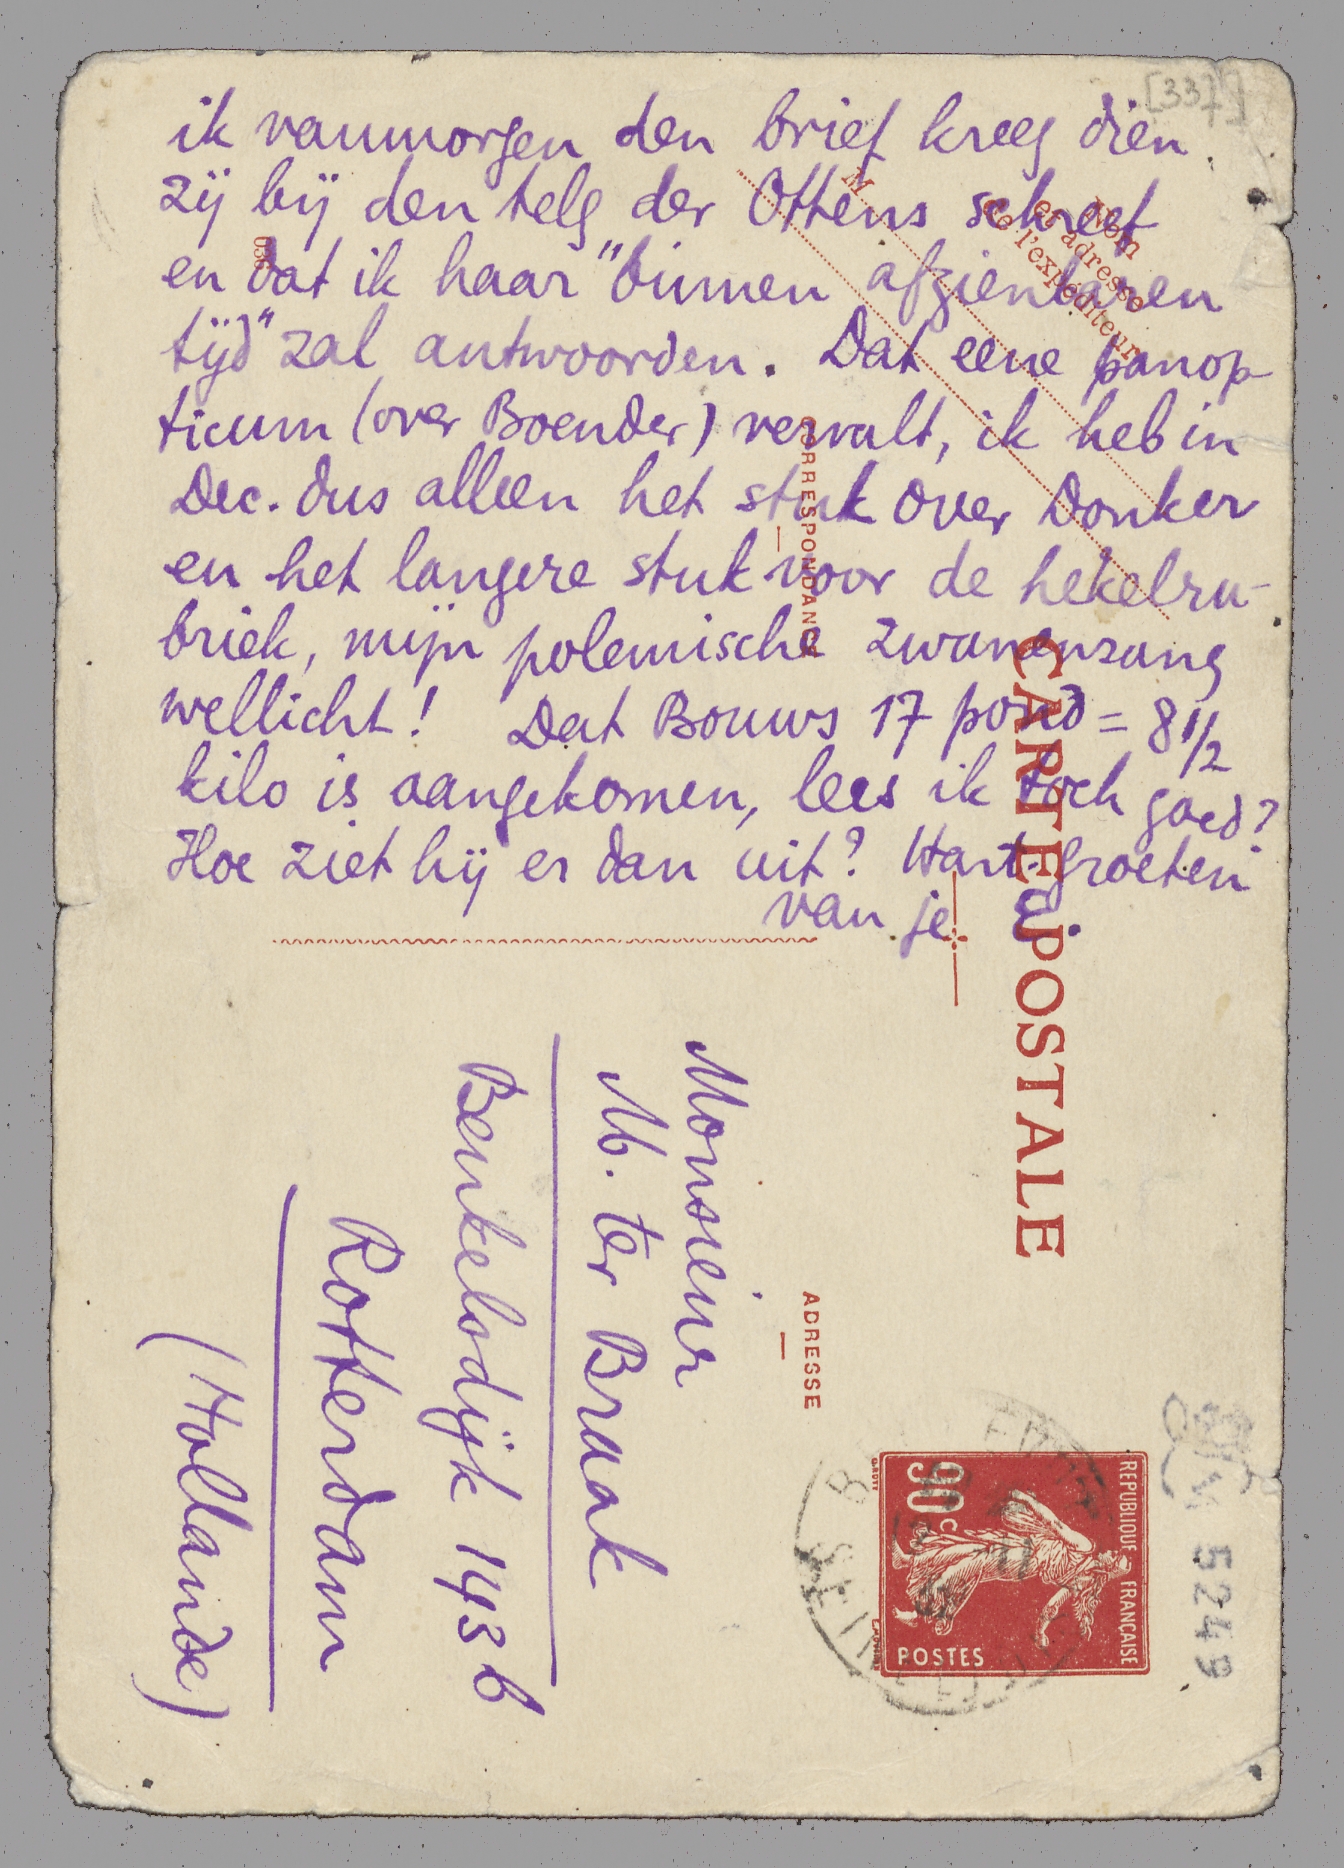 [337]
ik vanmorgen den brief kreeg dien
zij bij den telg der Ottens schreef
en dat ik haar "binnen afzienbaren
tijd" zal antwoorden. Dat eene panop-
ticum (over Boender) vervalt, ik heb in
Dec. dus alleen het stuk over Donker
en het langere stuk voor de hekelru-
briek, mijn polemische zwanenzang
wellicht! Dat Bouws 17 pond = 8 1/2
kilo is aangekomen, lees ik toch goed?
Hoe ziet hij er dan uit? Hart. groeten
van je
Nom
et adresse
de l'expéditeur
M
CARTE POSTALE
CORRESPONDANCE
ADRESSE
Monsieur
M. ter Braak
Beukelsdijk 143 b
Rotterdam
(Hollande)
REPUBLIQUE FRANÇAISE
90c
POSTES
5249